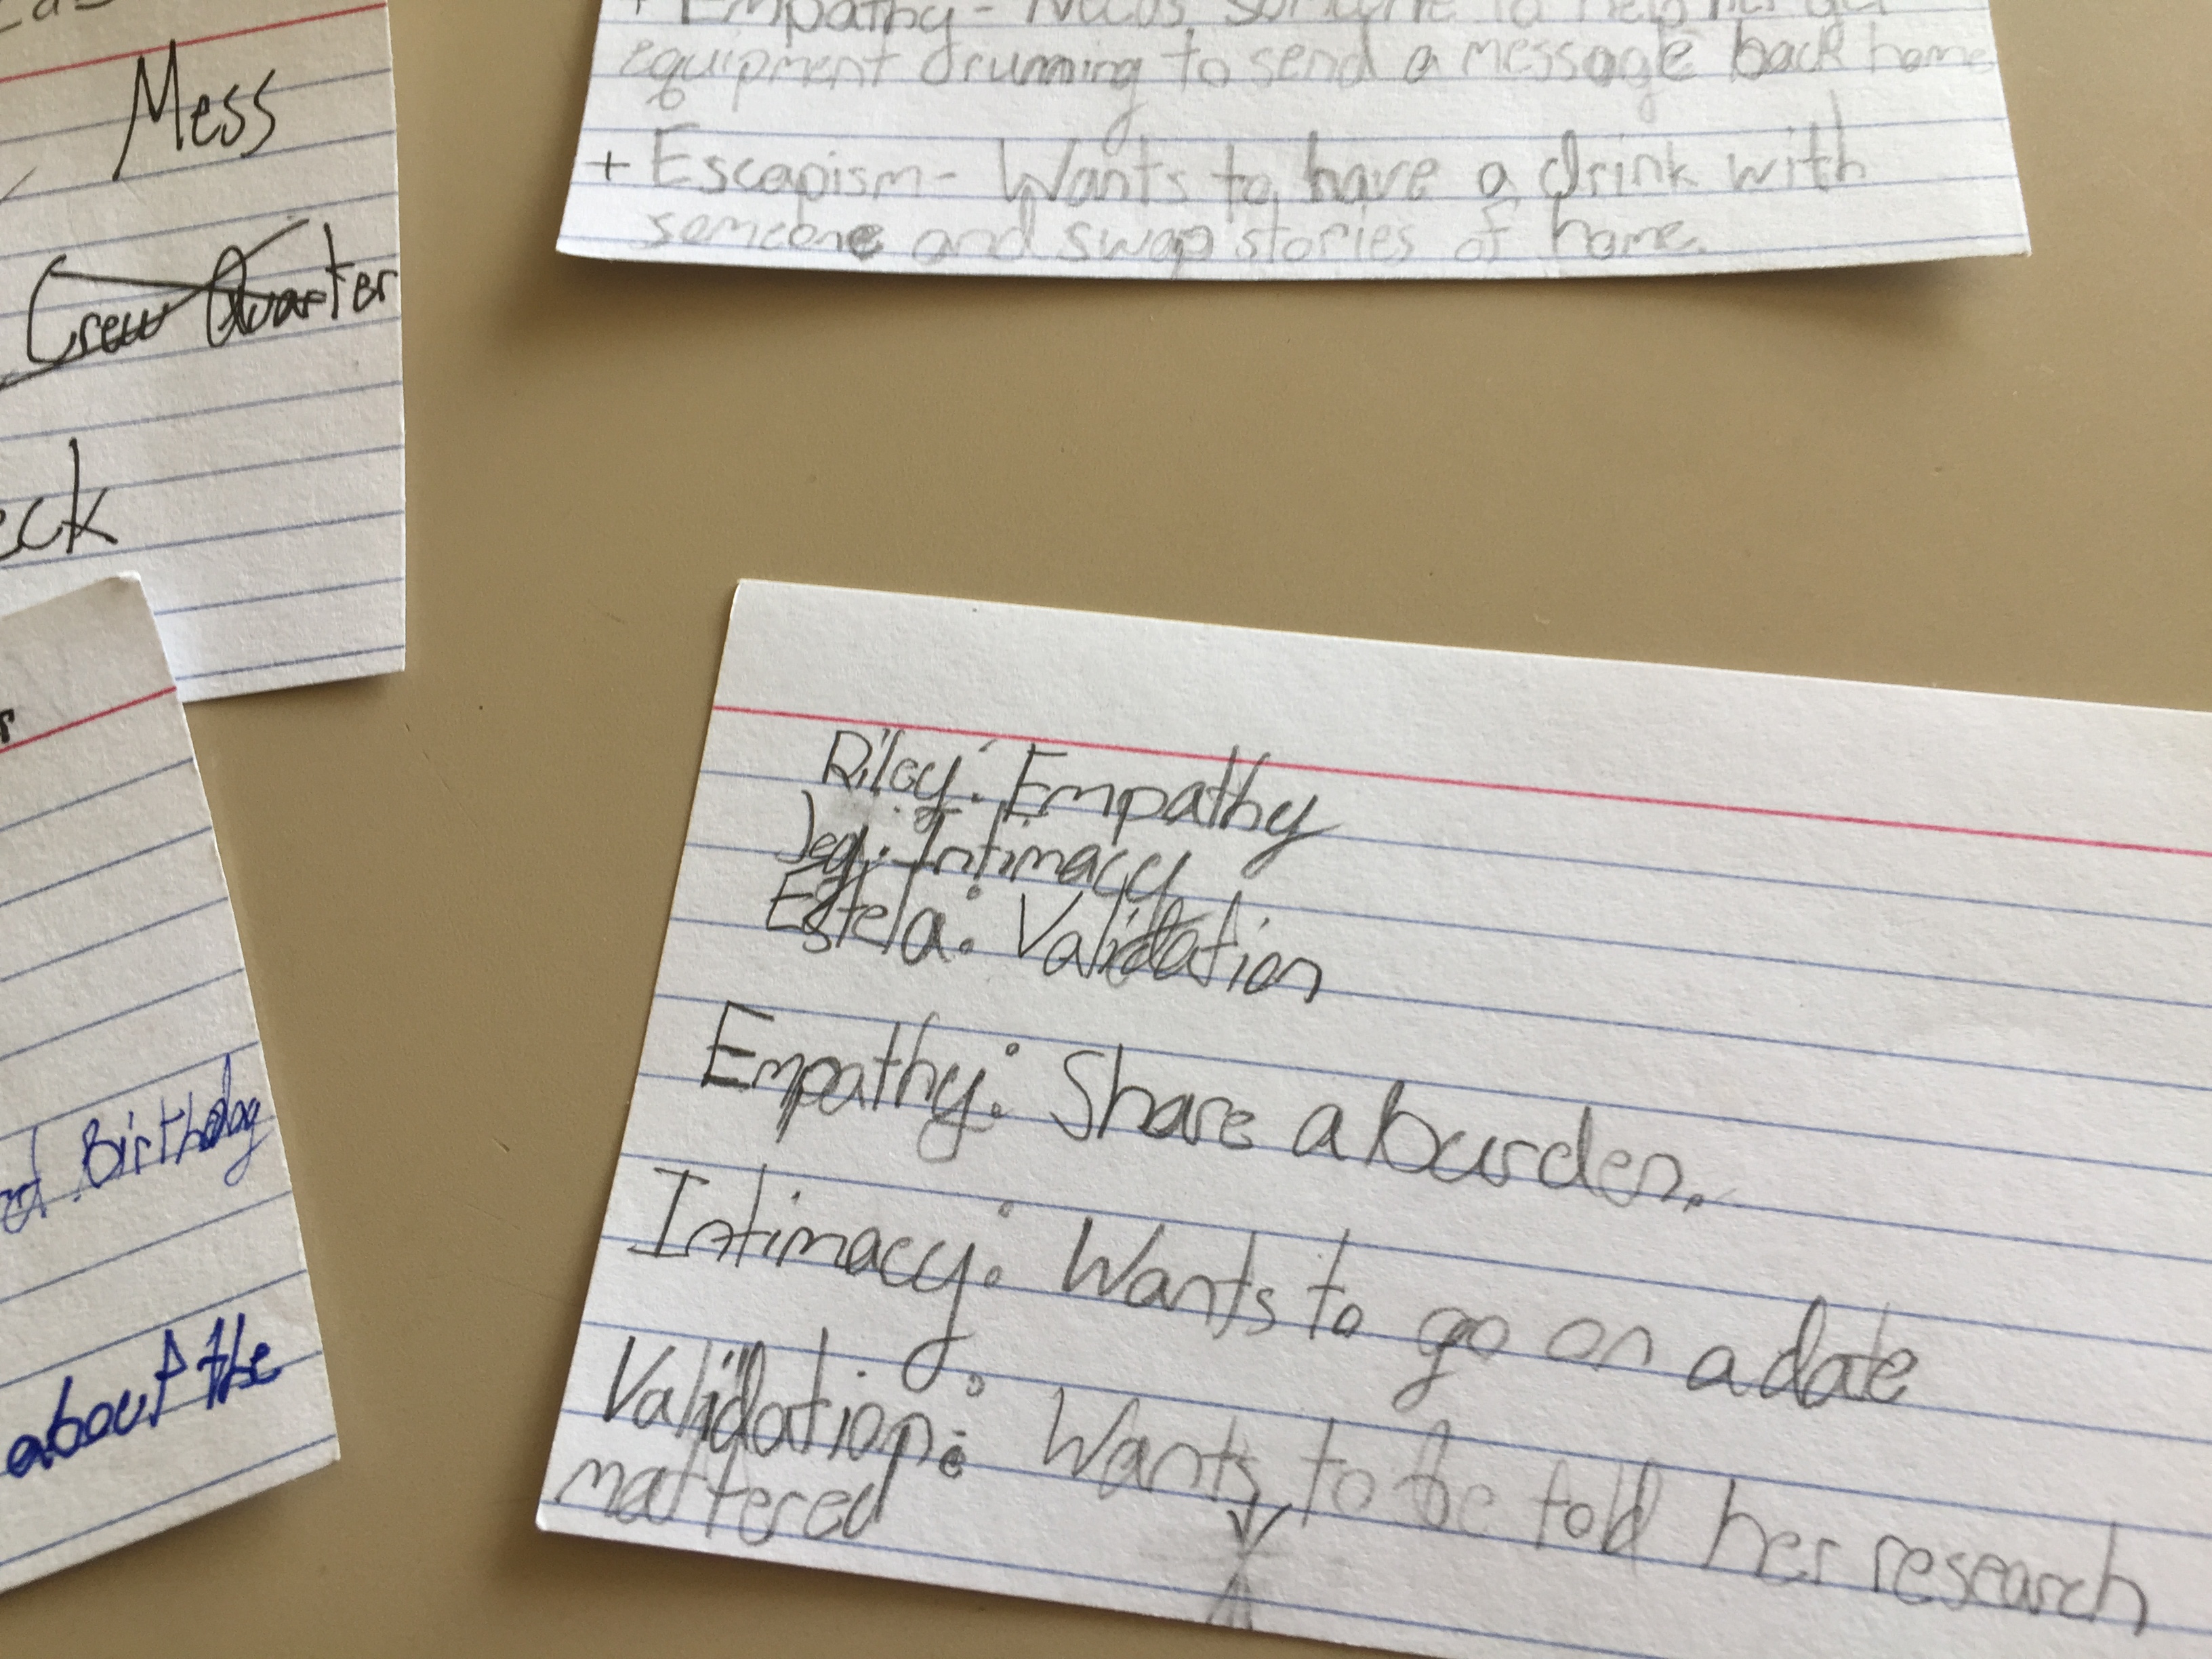 Mess
Crew Quarter
eck
Birthday
about the
+ Empathy - Needs someone to help her get
equipment drunning to send a message back home
+ Escapism - Wants to have a drink with
someone and swap stories of home.
Riley: Empathy
Intimacy
Estela: Validation
Empathy: Share a burden.
Intimacy: Wants to go on a date
Validation: Wants to be told her research
mattered